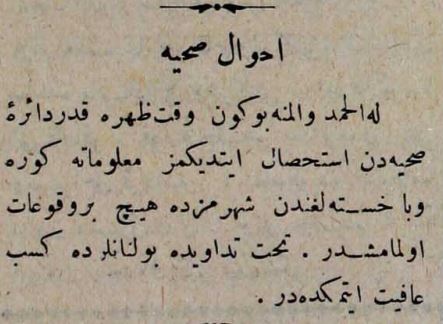 احوال صحیه
له‌الحمد والمنه بوكون وقت ظهره قدر دائرۀ
صحیه‌دن استحصال ایتدیكمز معلوماته كوره
وبا خسته‌لغندن شهرمزده هیچ بر وقوعات
اولمامشدر . تحت تداویده بولنانلر ده كسب
عافیت ایتمكده‌در .